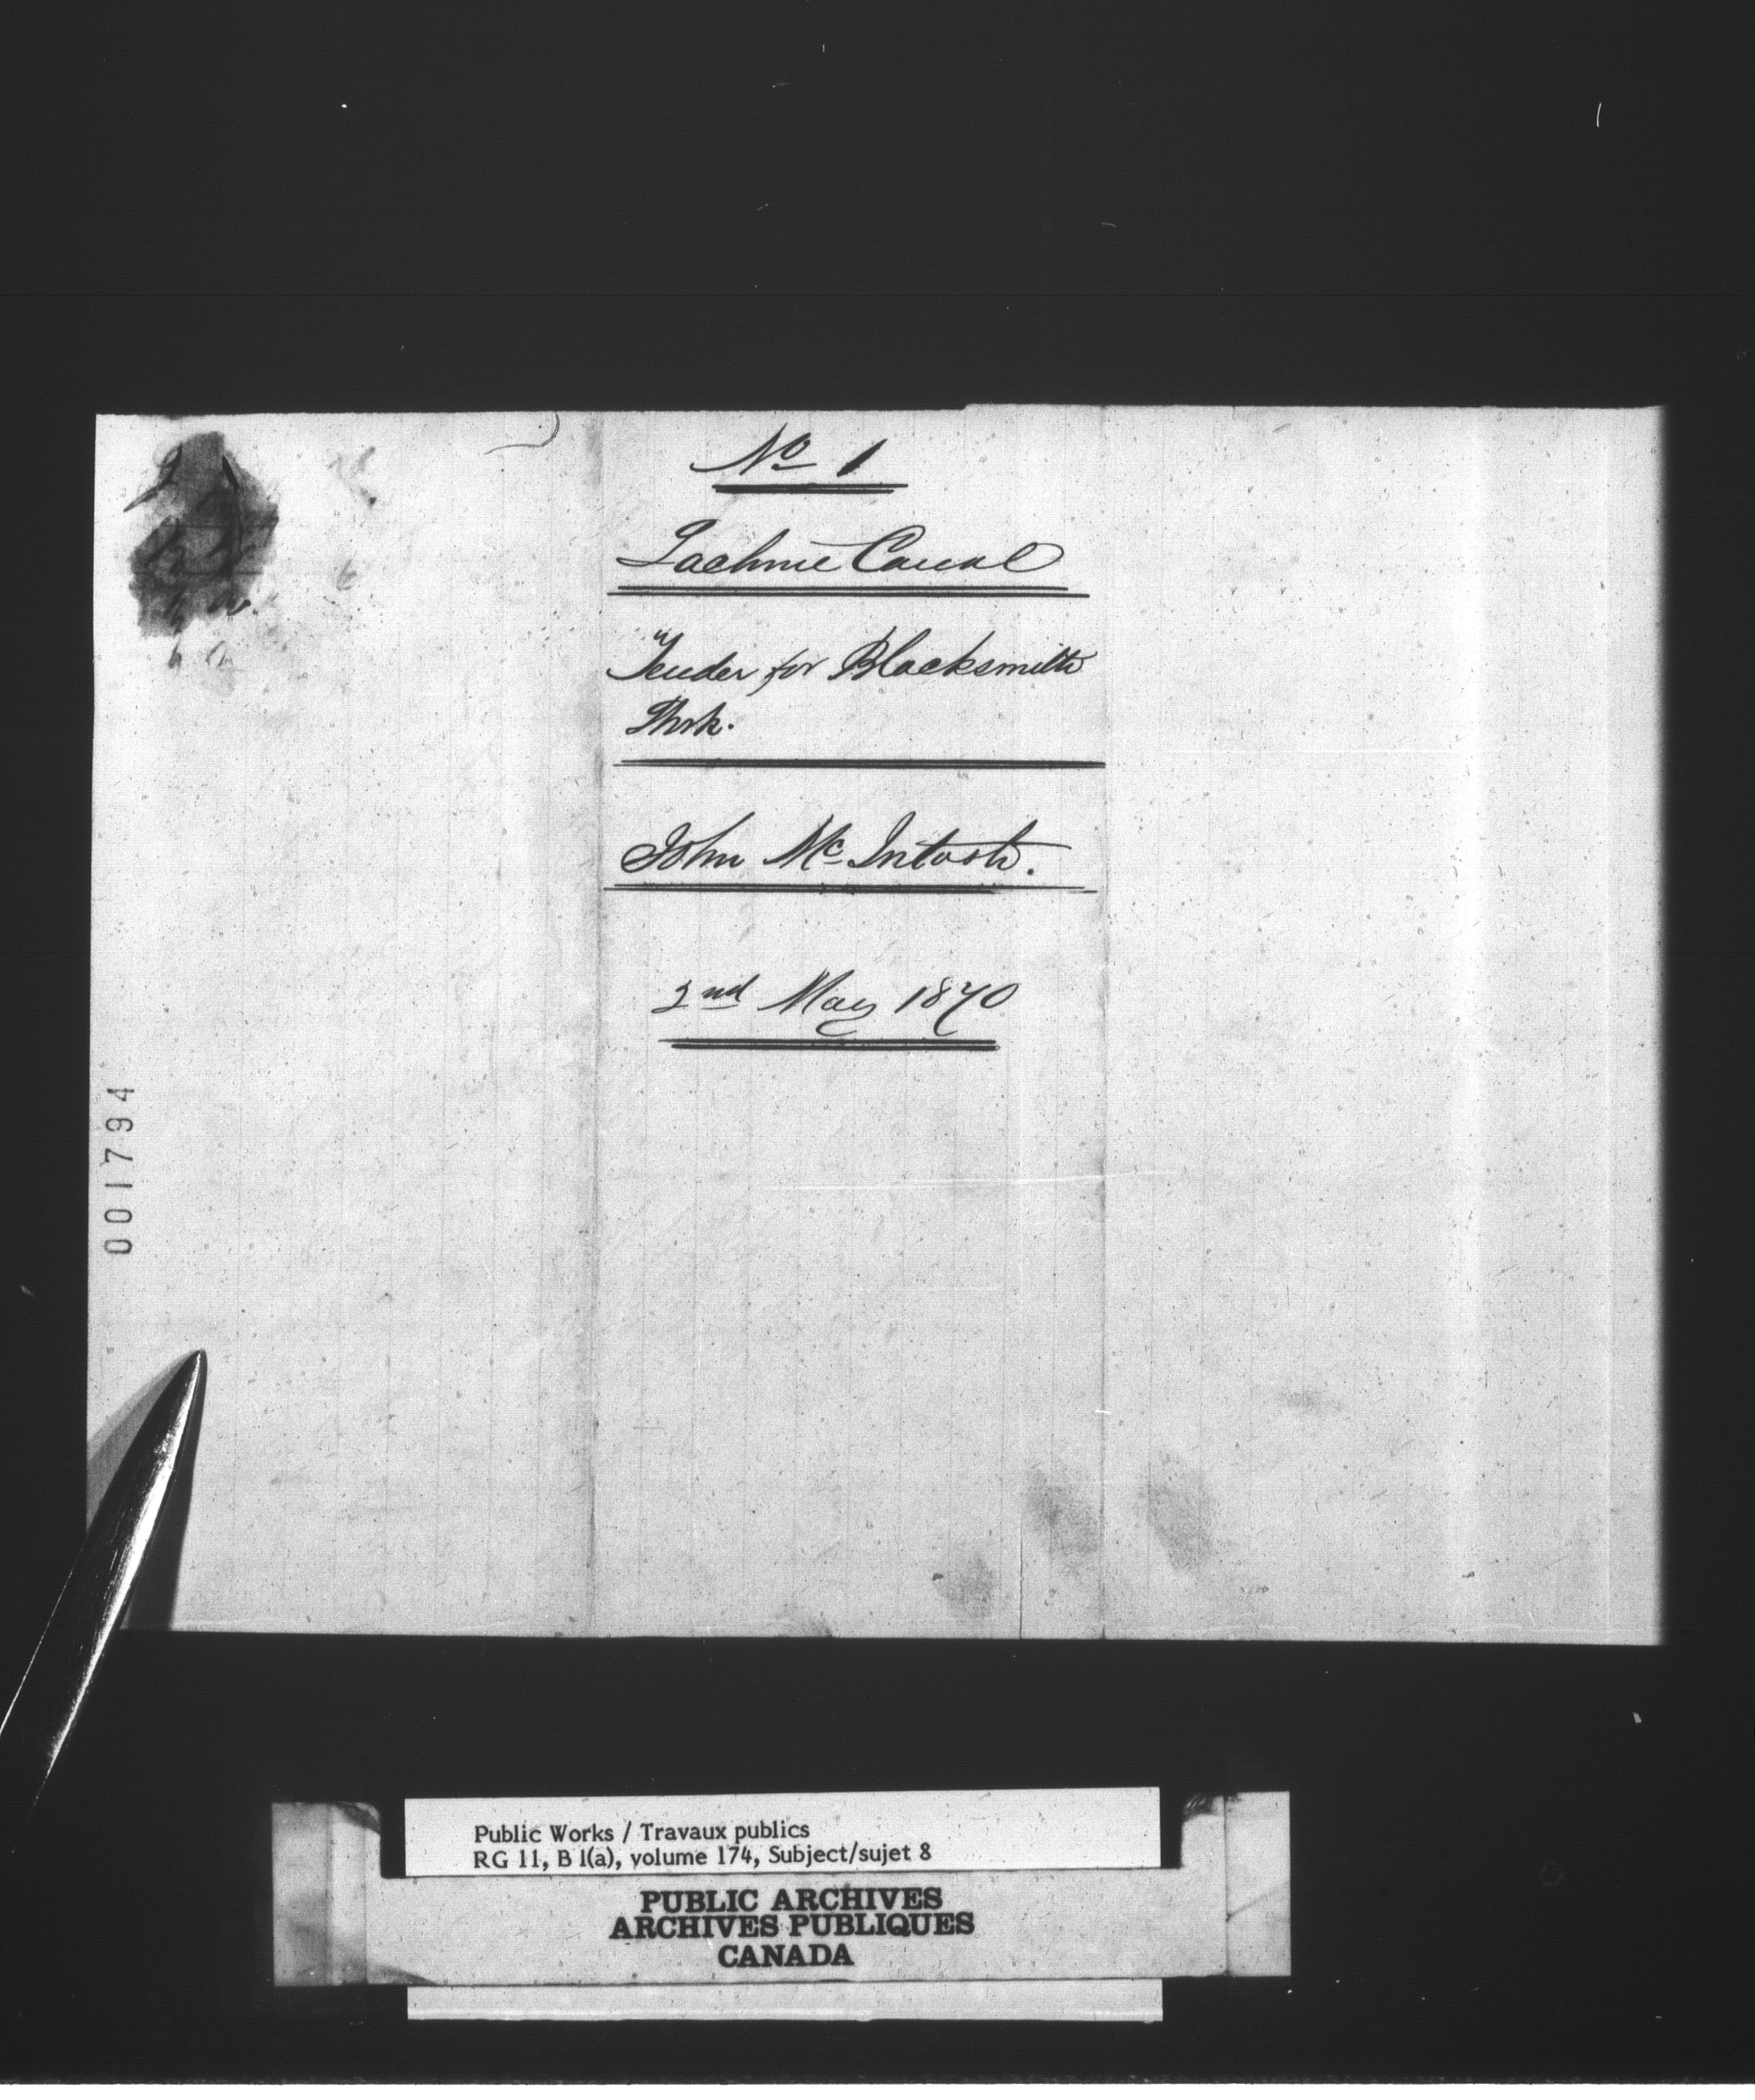 No 1
Lachine Canal
Tender for Blacksmith
Work.
John Mc Intosh.
2nd May 1870
001794
Public Works / Travaux publics
RG 11, B 1(a), volume 174, Subject/sujet 8
PUBLIC ARCHIVES
ARCHIVES PUBLIQUES
CANADA